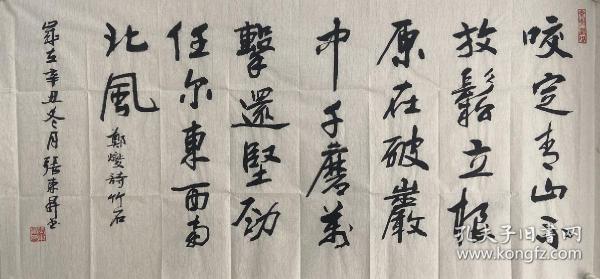 咬定青山不
放鬆立根
原在破巖
中千磨萬
擊還堅勁
任尔東西南
北風
鄭燮詩竹石
歲在辛丑冬月張東昇書
孔夫子旧书网
www.kongfz.com